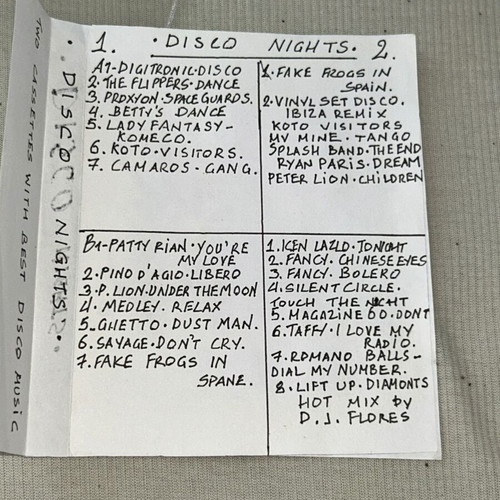 TWO CASSETTES WITH BEST DISCO MUSIC
• DISCO NIGHTS 2 •
1. • DISCO NIGHTS • 2.
A1-DIGITRONIL•DISCO
2•THE FLIPPERS•DANCE
3•PROXYON•SPACE GUARDS.
4. BETTY'S DANCE
5. LADY FANTASY-
KOMECO.
6. KOTO•VISITORS.
7. CAMAROS•GANG.
1.FAKE FROGS IN
SPAIN.
2.VINYL SET DISCO.
IBIZA REMIX
KOTO VISITORS
MY MINE•TANGO
SPLASH BAND•THE END
RYAN PARIS•DREAM
PETER LION•CHILDREN
B1-PATTY RIAN•YOU'RE
MY LOVE
2•PINO D'AGIO•LIBERO
3•P.LION•UNDER THE MOON
4. MEDLEY. RELAX
5_GHETTO•DUST MAN.
6.SAVAGE•DON'T CRY.
7.FAKE FROGS IN
SPANE.
1.KEN LAZLO•TONIGHT
2. FANCY•CHINESE EYES
3. FANCY. BOLERO
4.SILENT CIRCLE.
TOUCH THE NIGHT
5. MAGAZINE 60•DONT
6.TAFFY•I LOVE MY
RADIO.
7.ROMANO BALLS-
DIAL MY NUMBER.
8.LIFT UP•DIAMONTS
HOT MIX by
D.J. FLORES